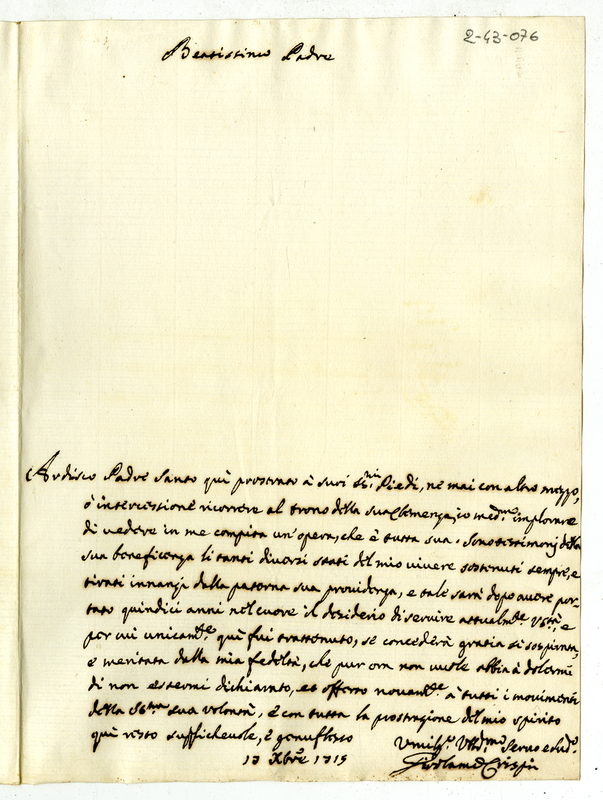 2-43-076
Beatissimo Padre
Ardisco Padre Santo quì prostrato à suoi Ss.mi Piedi, ne mai con altro mezzo,
ò intercessione ricorrere al trono della sua Clemenza, io med.mo implorare
di vedere in me compita un'opera, che è tutta sua. Sono testimonj della
sua beneficenza li tanti diversi stati del mio vivere sostenuti sempre, e
tirati innanzi dalla paterna sua providenza, e tale sarà dopo avere por-
tato quindici anni nel cuore il desiderio di servire attualm.te V. S.tà, e
per cui unicam.te quì fui trattenuto, se concederà gratia si sospirata,
e meritata dalla mia fedeltà, che pur ora non vuole abbia à dolermi
di non essermi dichiarato, et offerto novam.te à tutti i movimenti
della S.ma sua volontà, e con tutta la prostrazione del mio spirito
quì resto supplichevole, e genuflesso
Umiliss.o Servo e
13 Xbre 1719
Girolamo Crispi